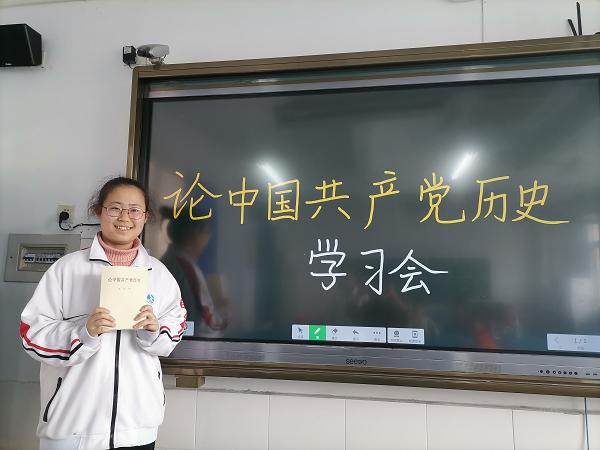 论中国共产党历史
学习会
论中国共产党历史
seewo